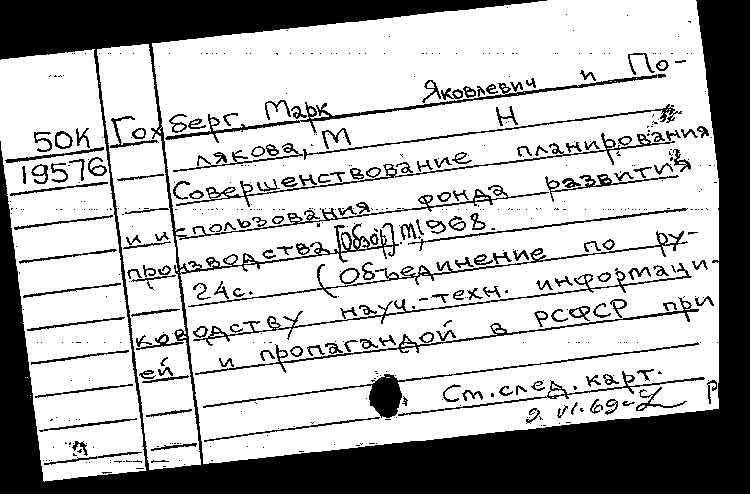 50К
19576
Гохберг, Марк Яковлевич и По-
лякова, М Н
Совершенствование планирования
и использования фонда развития
производства. [Обзор] М, 1968.
24с. (Объединение по ру-
ководству науч.-техн. информаци-
ей и пропагандой в РСФСР при
См. след. карт.
9. VI.69-